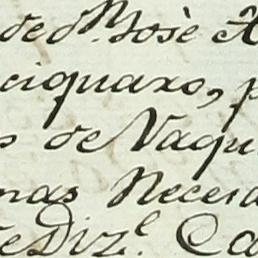 de dⁿ Josè
ciquaro, p
s de Vaqu
mas Necesa
de Dizᵉ. Ca